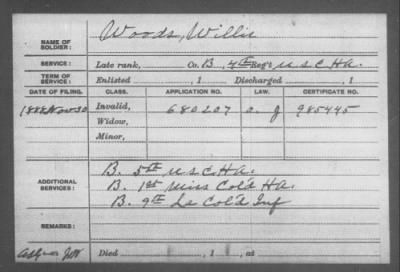 NAME OF SOLDIER: Woods, Willis
SERVICE: Late rank, Co. B, 4th Reg't U S C H A.
TERM OF SERVICE: Enlisted , 1 Discharged , 1
DATE OF FILING. CLASS. APPLICATION NO. LAW. CERTIFICATE NO.
1888 Nov 30 Invalid, 680207 985445
Widow,
Minor,
ADDITIONAL SERVICES: B. 5th U S C H A.
B. 1st Miss Cold H A.
B. 9th La Cold Inf
REMARKS:
Died , 1 , at